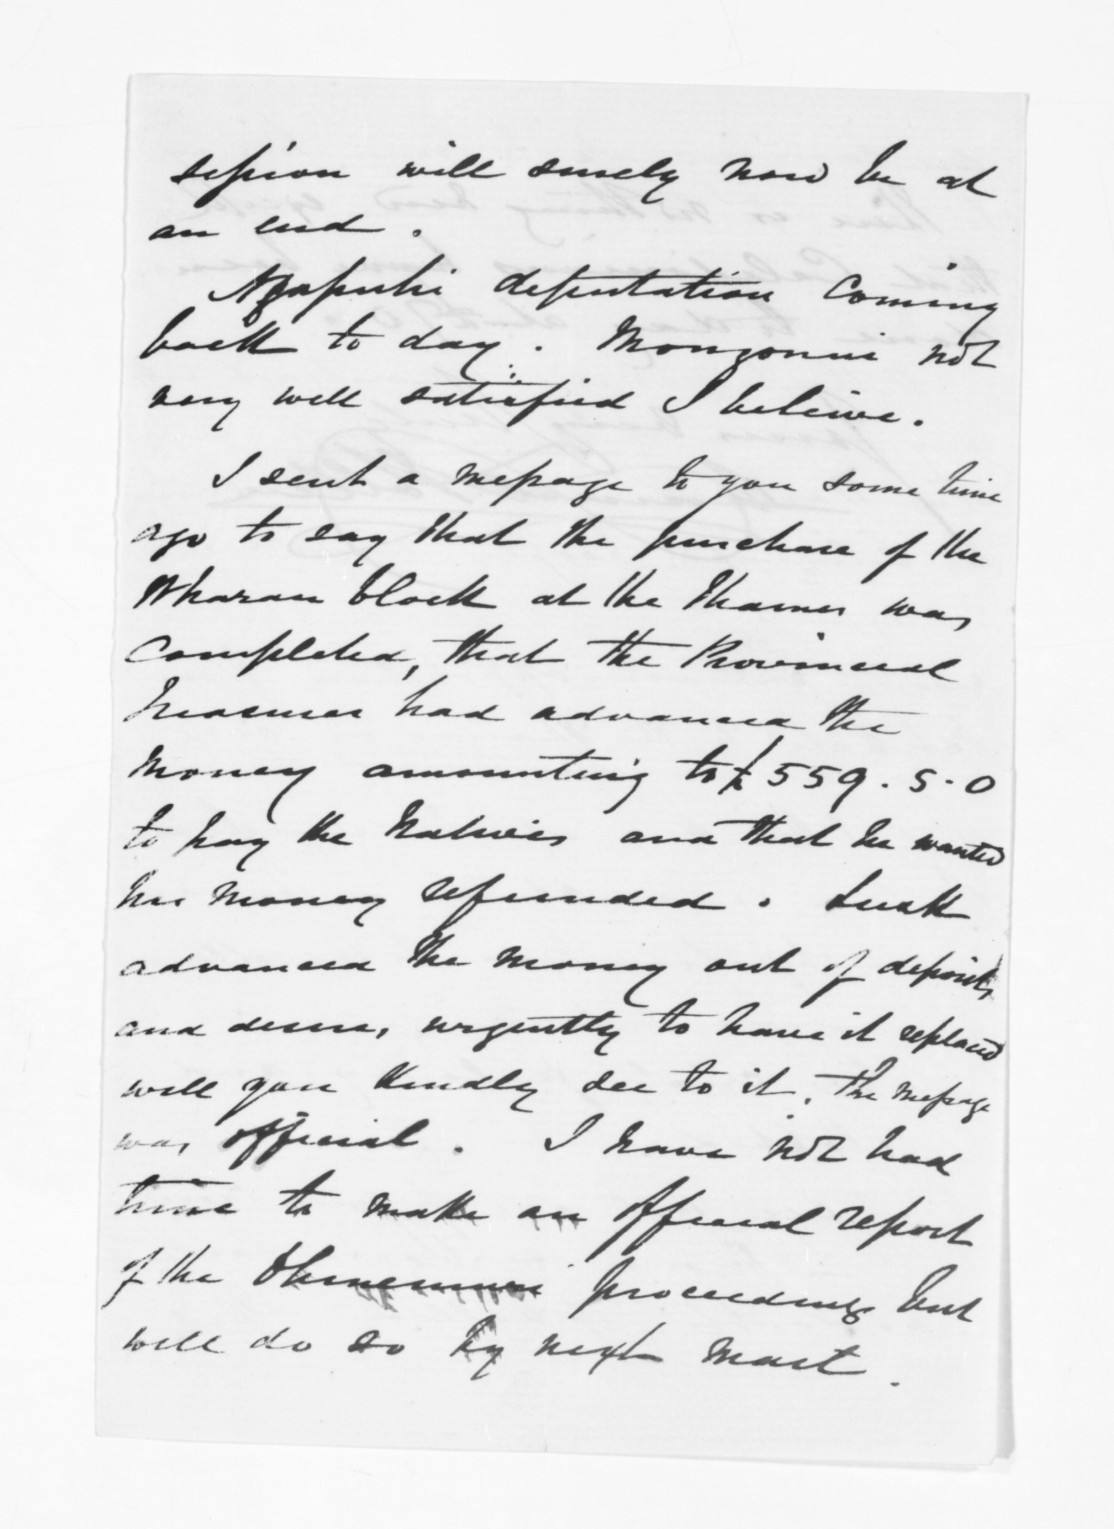 session will surely now be at
an end.
Ngapuhi deputation coming
back to day. Mongonui not
very well satisfied I believe.
I sent a message to you some time
ago to say that the purchase of the
block at the Thames was
completed, that the Provincial
Treasurer had advanced the
money amounting to £559.5.0
to pay the Natives and that he wanted
his money refunded. Lusk
advanced the money out of deposits,
and desires urgently to have it replaced
will you kindly see to it. The message
was official. I have not had
time to make an official report
of the Ohinemuri proceedings but
will do so by next mail.